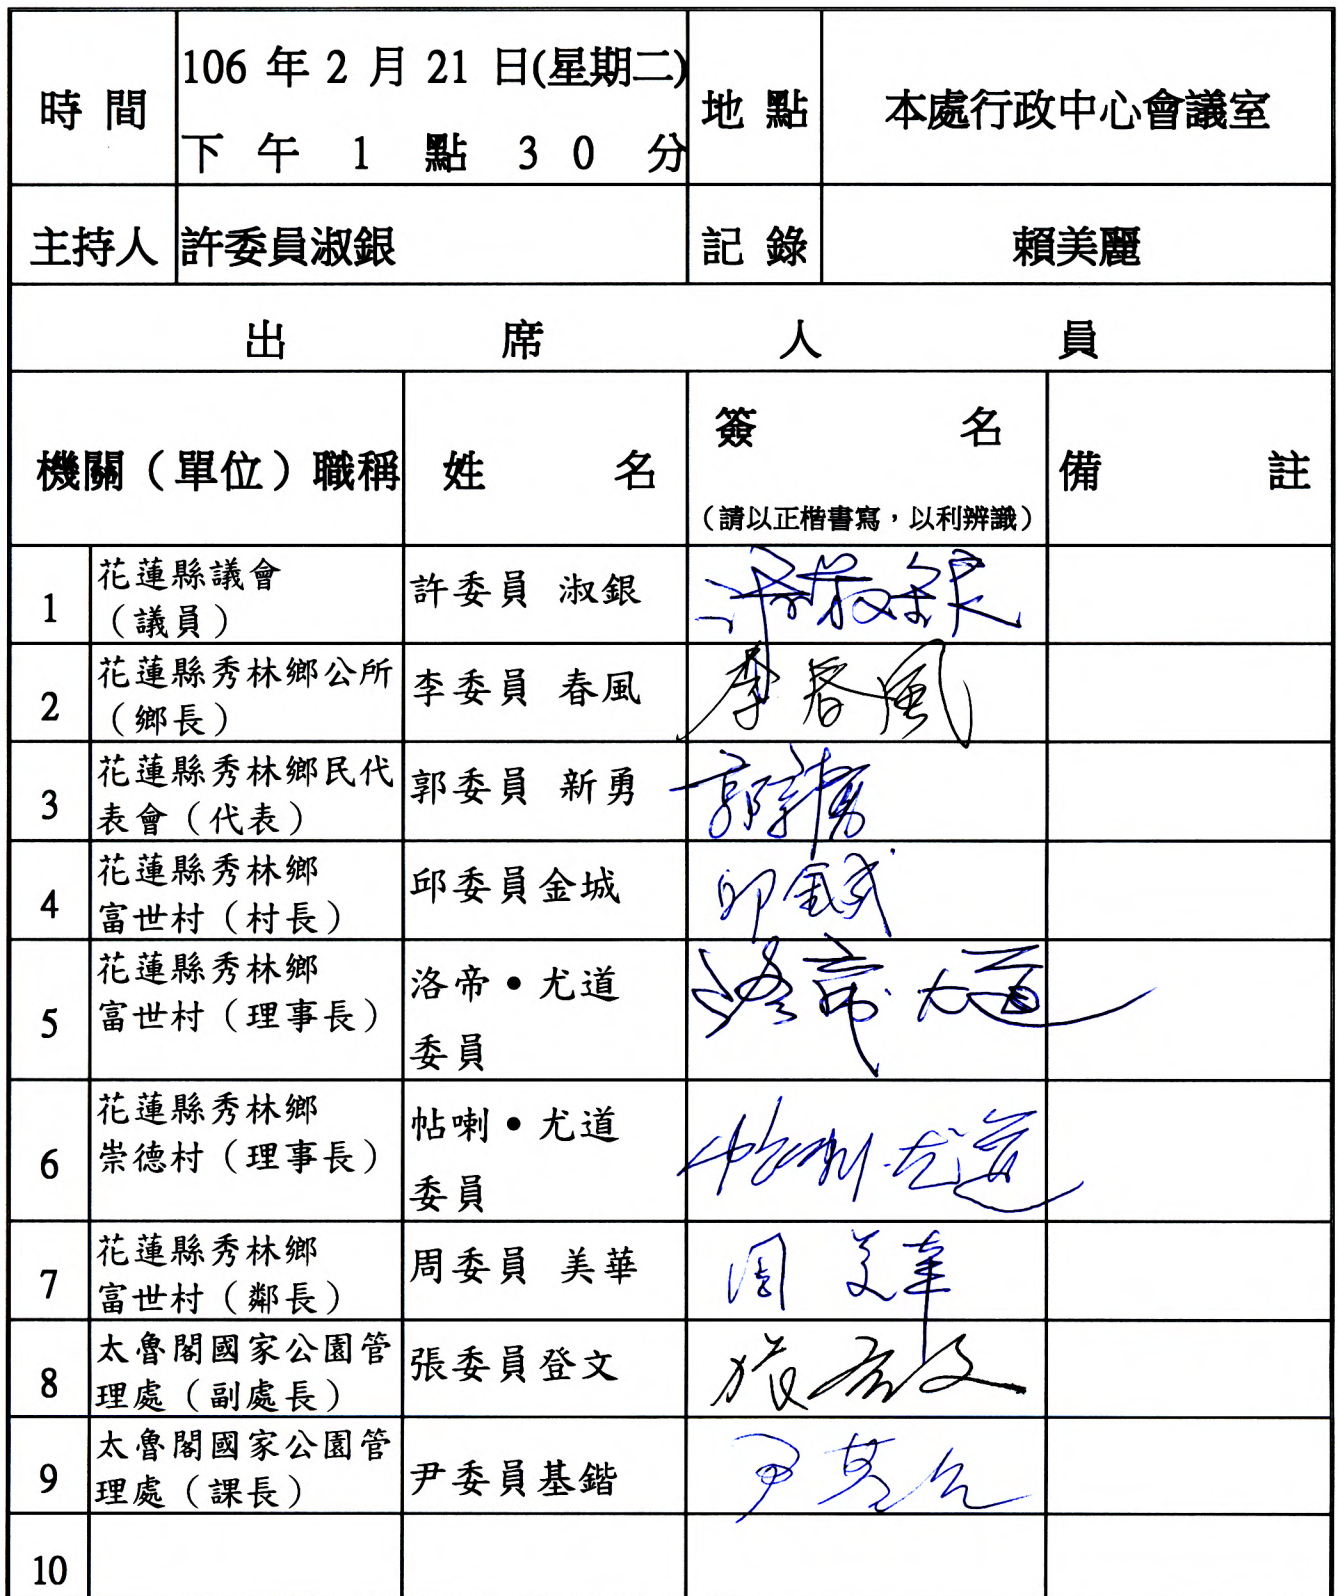 時 間
106 年 2 月 21 日(星期二)
下 午 1 點 3 0 分
地 點
本處行政中心會議室
主持人
許委員淑銀
記 錄
賴美麗
出 席 人 員
機關（單位）職稱
姓 名
簽 名
（請以正楷書寫，以利辨識）
備 註
1
花蓮縣議會
（議員）
許委員 淑銀
許淑銀
2
花蓮縣秀林鄉公所
（鄉長）
李委員 春風
李春風
3
花蓮縣秀林鄉民代
表會（代表）
郭委員 新勇
郭新勇
4
花蓮縣秀林鄉
富世村（村長）
邱委員金城
邱金城
5
花蓮縣秀林鄉
富世村（理事長）
洛帝•尤道
委員
洛帝 尤道
6
花蓮縣秀林鄉
崇德村（理事長）
帖喇•尤道
委員
帖喇·尤道
7
花蓮縣秀林鄉
富世村（鄰長）
周委員 美華
周 美華
8
太魯閣國家公園管
理處（副處長）
張委員登文
張登文
9
太魯閣國家公園管
理處（課長）
尹委員基鍇
10